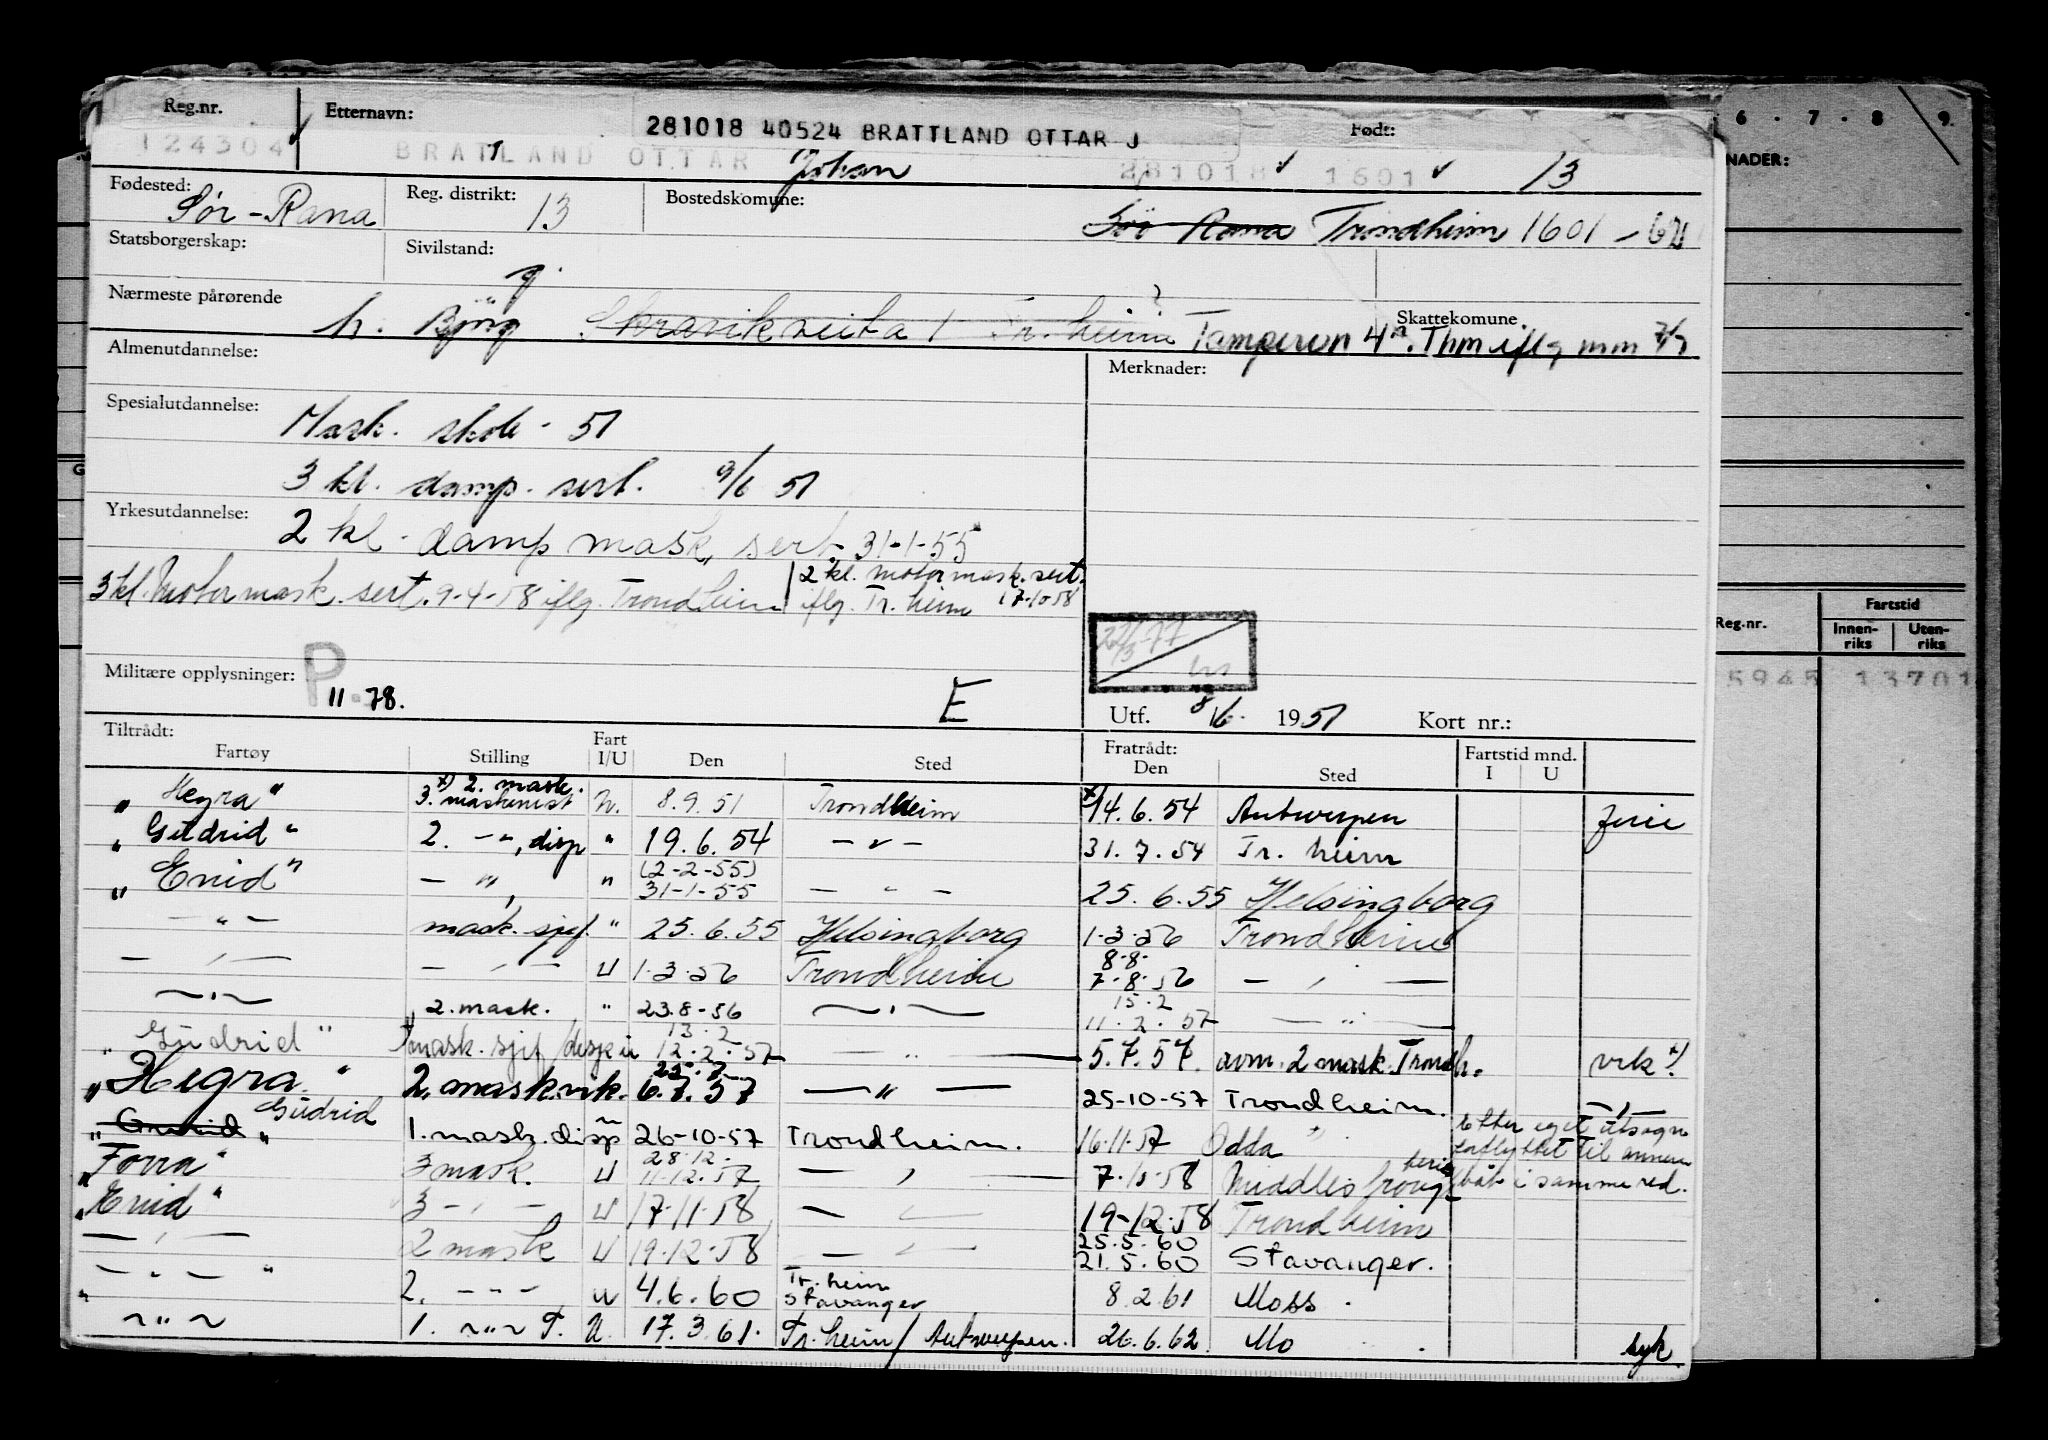 Reg.nr. Etternavn: 281018 40524 BRATTLAND OTTAR J Født:
124304 BRATLAND OTTAR Johan 281018 1601 13
Fødested: Sør-Rana Reg. distrikt: 13 Bostedskomune: Sör Rana Trondheim 1601 - 62
Statsborgerskap: Sivilstand: g.
Nærmeste pårørende h. Bjørg Tr. heim ? Skattekomune.
Tampervn 4 Thm iflg mm
Almenutdannelse: Merknader:
Spesialutdannelse: Mask. skole - 51
3 kl. damp. sert. 9/6 51
Yrkesutdannelse: 2 kl. damp mask. sert. 31-1-55
3 kl. Motor mask. sert. 9-4-58 iflg. Trondheim 2 kl. motormask. sert. iflg. Tr. heim 17-10-58
Militære opplysninger: P 11-78. E
Utf. 8/6- 1951 Kort nr.:
Tiltrådt: Fratrådt: Fartstid mnd.
Fartøy Stilling Fart I/U Den Sted Den Sted I U
"Hegra" x) 2. mask. 3. maskinist U. 8.9.51 Trondheim x) 14.6.54 Antwerpen ferie
"Gudrid" 2. -"-, disp " 19.6.54 -"- 31.7.54 Tr. heim
"Enid" -"- " (2-2-55) 31-1-55 -"- 25.6.55 Helsingborg
-"- mask. sjef. " 25.6.55 Helsingborg 1-3-56 Trondheim
-"- -"- U 1-3-56 Trondheim 8-8- 7-8-56 -"-
-"- 2. mask. " 23.8-56 -"- 15.2 11.2.57 -"-
"Gudrid" mask. sjef 13.2 12.2.57 -"- 5.7.57. avm. 2 mask. Trondh. vik x)
"Hegra" 2. mask. vik. 22.7 6.7.57 -"- 25-10-57 Trondheim. -"-
"Gudrid" 1. mask. disp " 26-10-57 Trondheim. 16-11-57 Odda Etter eget utsagn
"Forra" 3 mask. U 28.12. 11.12.57 -"- 7.10.58 Middlesbroug forflyttet til annen
båt i samme red.
"Enid" 3 -"- U 17-11-58 -"- 19-12-58 Trondheim
-"- 2 mask U 19-12-58 -"- 25.5.60 21.5.60 Stavanger.
-"- 2. -"- U 4.6.60 Tr. heim Stavanger 8.2.61 Moss.
-"- 1. -"- T. U. 17.3.61. Tr. heim / Antwerpen. 26.6.62. Mo syk
6 . 7 . 8 9.
NADER:
G
Reg.nr. Fartstid
Innen-riks Uten-riks
5945 13701